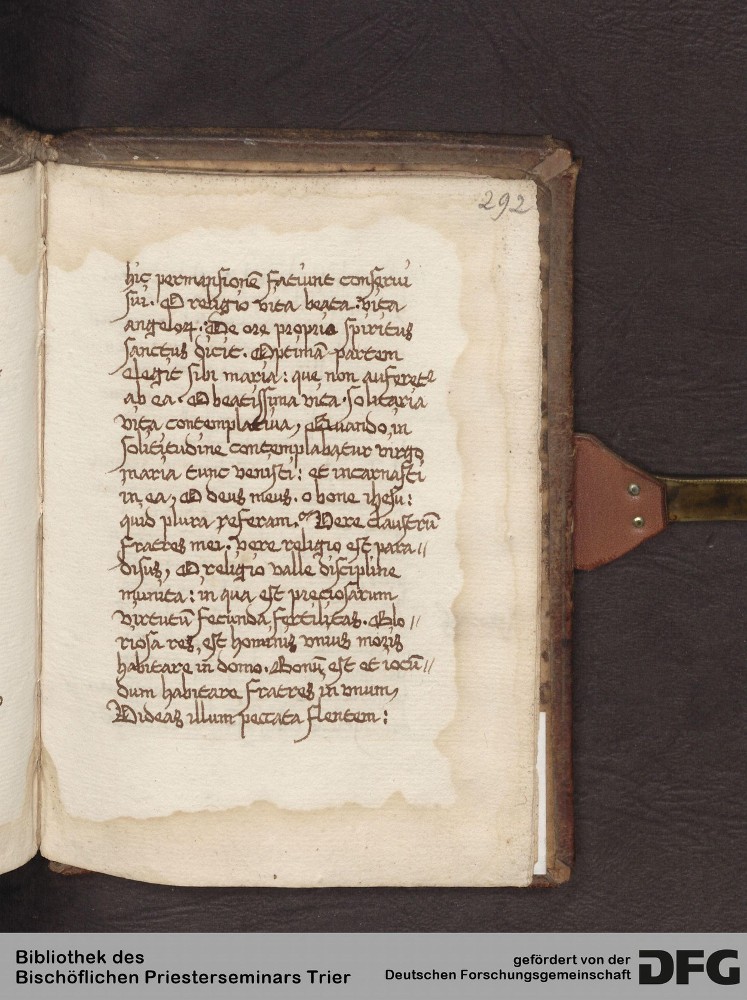 292
hic permansionē faciunt conserui
sui. O religio vita beata: vita
angeloꝝ. De ore proprio spiritus
sanctus dicit. Optimā partem
elegit sibi maria: que non auferetᵉ
ab ea. O beatissima vita. solitaria
vita contemplatiua, Quando in
solitudine contemplabatur virgo
maria tunc venisti: et incarnasti
in ea, O deus meus. o bone ihesu:
quid plura referam. Vere claustrū
fratres mei. vere religio est para//
disus, O religio valle discipline
munita: in qua est preciosarum
virtutū fecunda fertilitas. Glo//
riosa res, est hominis vnius moris
habitare in domo. Bonū est et iocū//
dum habitare fratres in vnum,
Videas illum peccata flentem:
Bibliothek des
Bischöflichen Priesterseminars Trier
gefördert von der
Deutschen Forschungsgemeinschaft
DFG